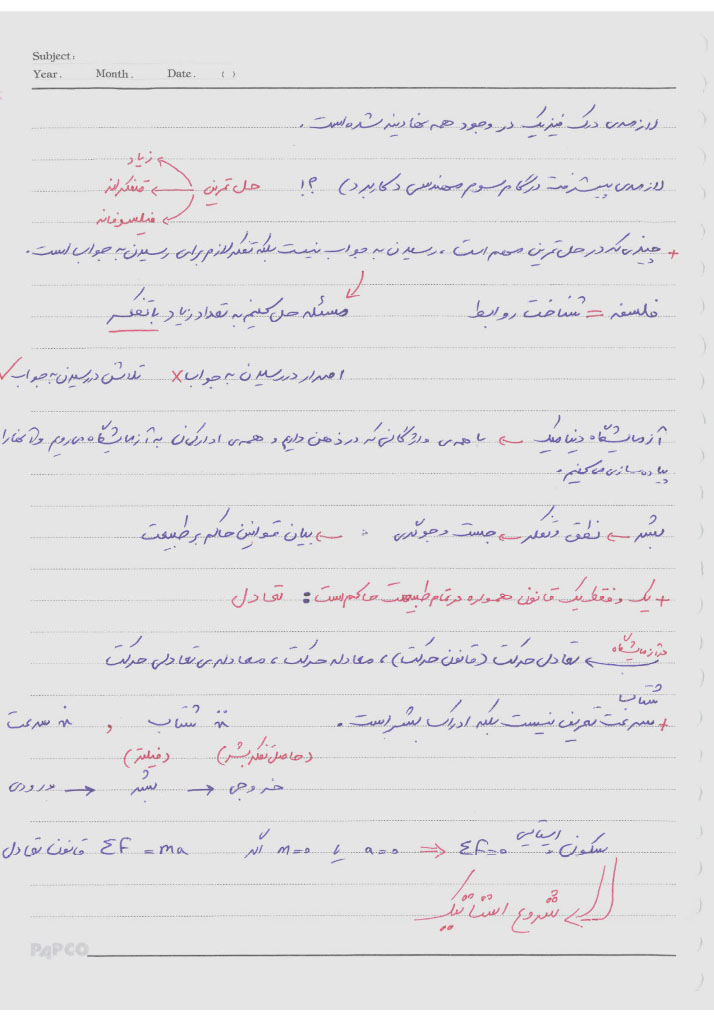 Subject:
Year. Month. Date. ( )
لازمه‌ی درک فیزیک در وجود همه نهادینه شده است.
لازمه‌ی پیشرفت در گام سوم مهندسی (کاربرد) ؟! حل تمرین ← زیاد
← متفکرانه
← فیلسوفانه
+ چیزی که در حل تمرین مهم است، رسیدن به جواب نیست بلکه تفکر لازم برای رسیدن به جواب است.
فلسفه = شناخت روابط مسئله حل کنیم به تعداد زیاد با تفکر
اصرار در رسیدن به جواب × تلاش در رسیدن به جواب ✓
آزمایشگاه دینامیک ← با همه‌ی واژگانی که در ذهن داریم و همه‌ی ادراکمان به آزمایشگاه می‌رویم و آنها را
پیاده‌سازی می‌کنیم.
بشر ← نطق و تفکر ← جست و جوگری : ← بیان قوانین حاکم بر طبیعت
+ یک و فقط یک قانون همواره در تمام طبیعت حاکم است : تعادل
در آزمایشگاه ← تعادل حرکت (قانون حرکت)، معادله حرکت، معادله‌ی تعادلی حرکت
شتاب
+ سرعت تعریف نیست بلکه ادراک بشر است. ẍ شتاب , ẋ سرعت
(حاصل تفکر بشر) (فیلتر)
ورودی → بشر → خروجی
قانون تعادل ΣF = ma اگر m=0 یا a=0 ⇒ ΣF=0 سکون، ایستایی
شروع استاتیک
PAPCO